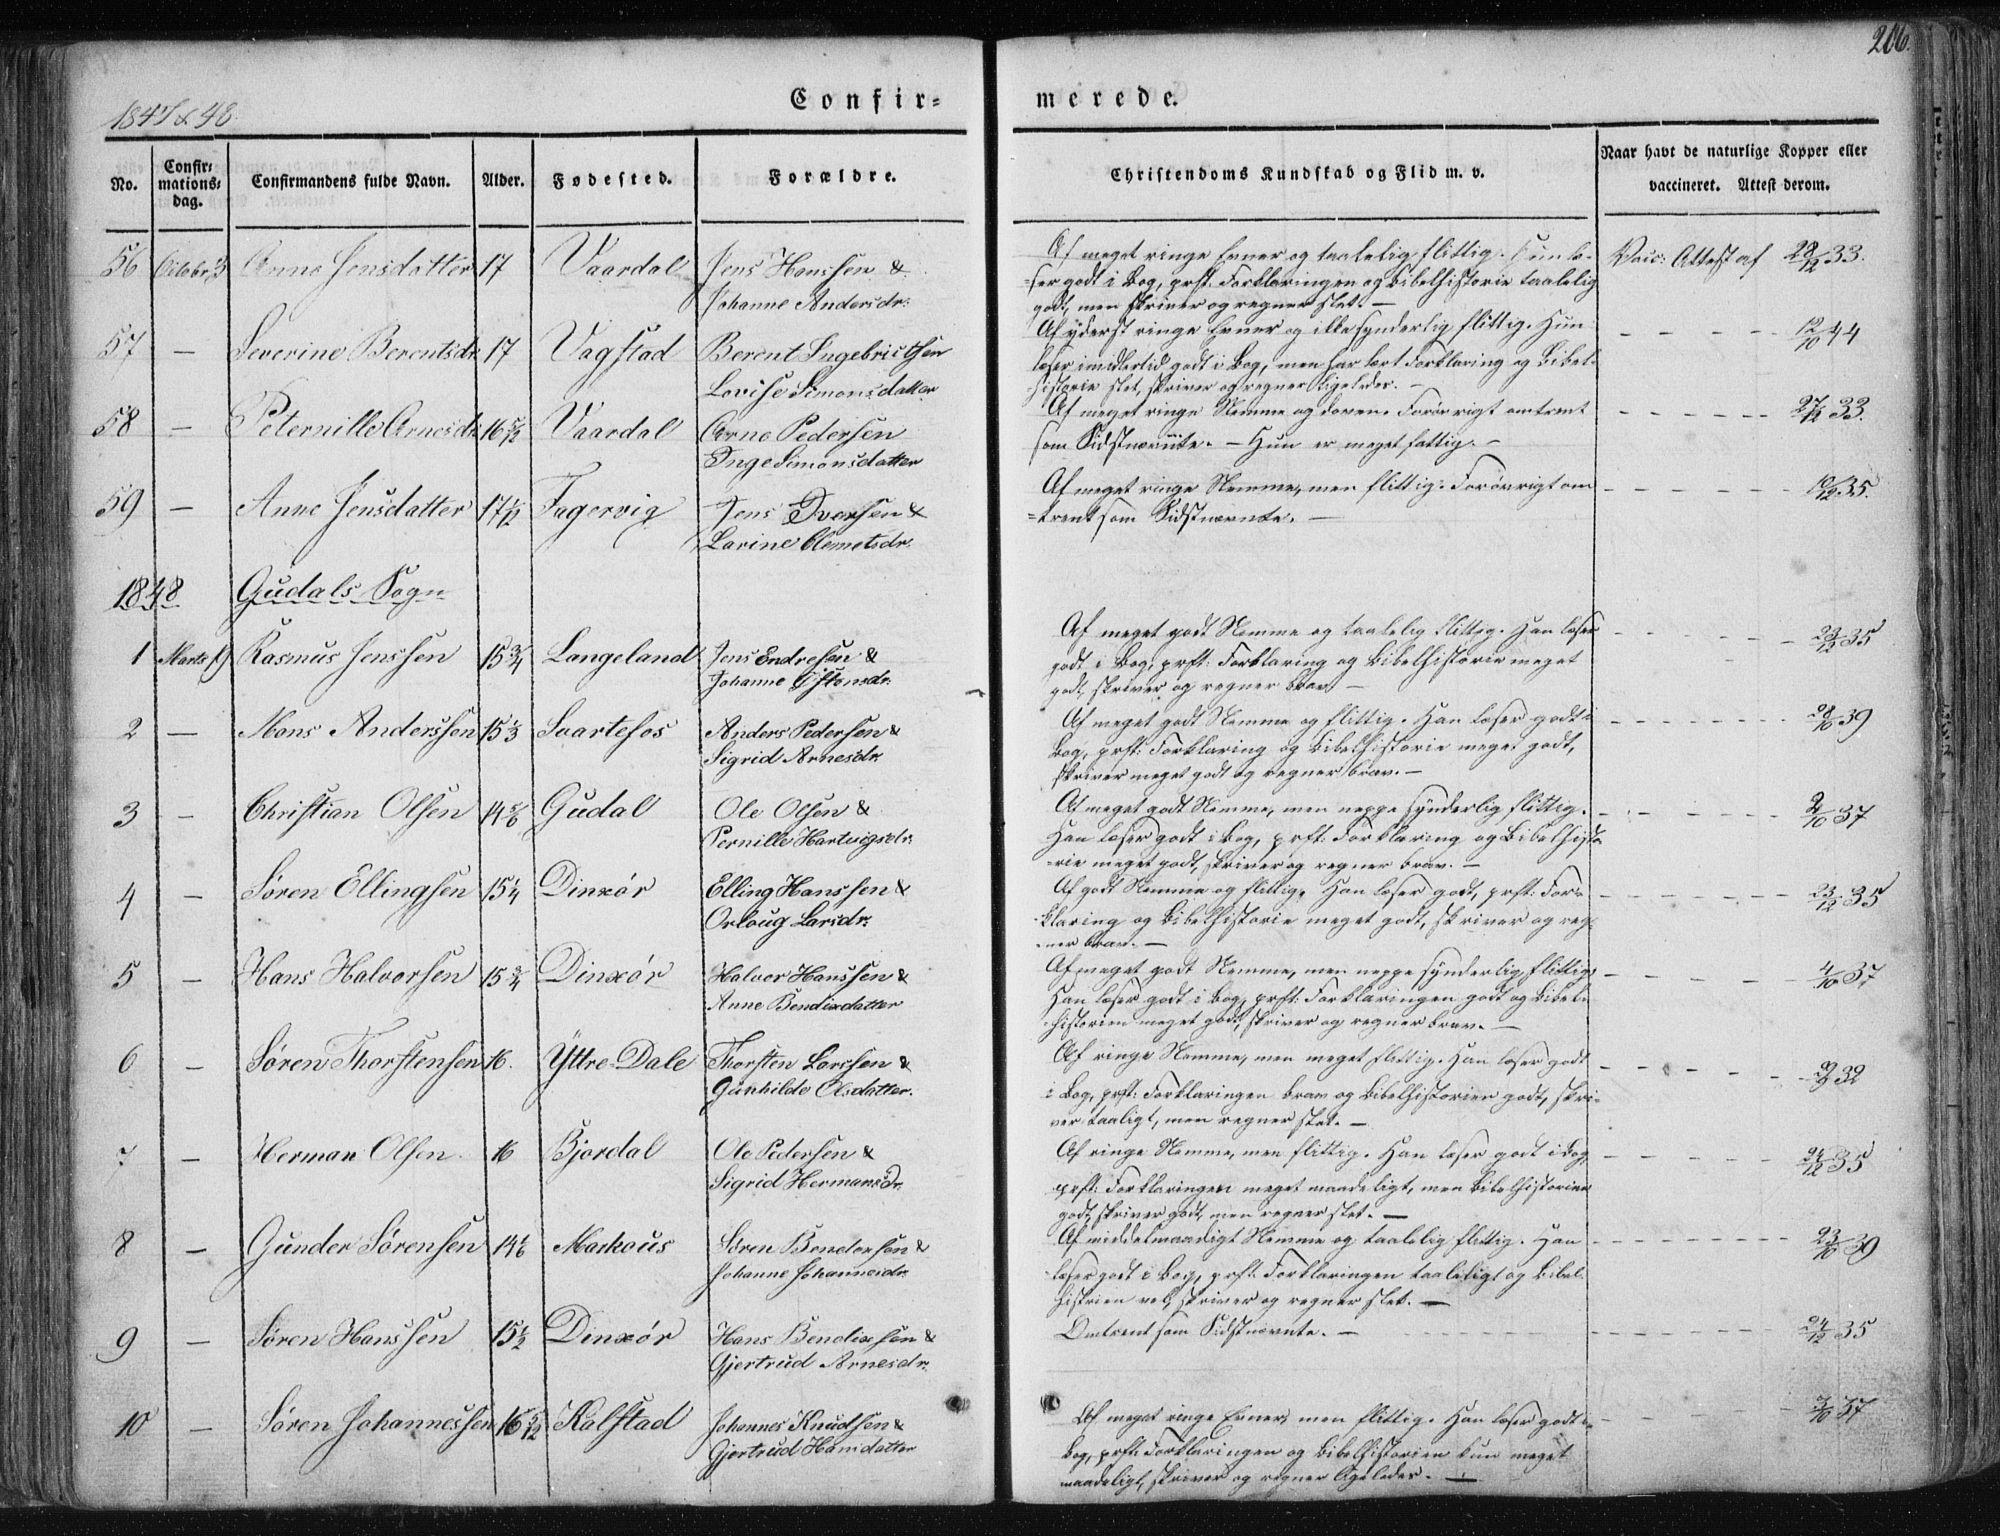 206.
1847 & 48.
Confir=
merede.
No.
Confir=
mations=
dag.
Confirmandens fulde Navn.
Alder.
Fødested.
Forældre.
Christendoms Kundskab og Flid m. v.
Naar havt de naturlige Kopper eller
vaccineret. Attest derom.
56 Octobr 3 Anna Jensdatter 17 Vaardal Jens Hanssen &
Johanne Andersdr:
Af meget ringe Evner og taalelig flittig. Hun læ-
=ser godt i Bog, præst: Forklaringen og Bibelhistorie taalelig
godt, men skriver og regner slet. —
Vacc: Attest af 28/12 33.
57 — Severine Berentsdr. 17 Vagstad Berent Ingebrigtsen
Lovise Simonsdatter
Af yderst ringe Evner og ikke synderlig flittig. Hun
læser imidlertid godt i Bog, men har lært Forklaring og Bibel-
historie slet, skriver og regner ligeledes. —
— — — — 12/10 44
58 — Peternille Arnesdr. 16 5/12 Vaardal Arne Pedersen
Inge Simonsdatter
Af meget ringe Nemme og doven. Forøvrigt omtrent
som Sidstnævnte. — Hun er meget fattig. —
— — — — 27/12 33.
59 — Anne Jensdatter 17 1/2 Fagervig Jens Iversen &
Larine Clemetsdr.
Af meget ringe Nemme, men flittig. Forøvrigt om
=trent som Sidstnævnte. —
— — — — 10/12 35.
1848 Gudals Sogn
1 Marts Rasmus Jenssen 15 3/4 Langeland Jens Endresen &
Johanne Østensdr.
Af meget godt Nemme og taalelig flittig. Han læser
godt i Bog, præst: Forklaring og Bibelhistorie meget
godt, skriver og regner brav. —
— — — — 23/12 35
2 — Mons Anderssen 15 1/3 Svartefos Anders Pedersen &
Sigrid Arnesdr.
Af meget godt Nemme og flittig. Han læser godt i
Bog, præst: Forklaring og Bibelhistorie meget godt,
skriver meget godt og regner brav. —
— — — — 28/10 39
3 — Christian Olsen 14 5/6 Gudal Ole Olsen &
Pernille Hartvigsdr.
Af meget godt Nemme, men neppe synderlig flittig.
Han læser godt i Bog, præst: Forklaring og Bibelhisto
=rie meget godt, skriver og regner brav. —
— — — — 2/10 37
4 — Søren Ellingsen 15 1/4 Dinxør Elling Hanssen &
Orloug Larsdr.
Af godt Nemme og flittig. Han læser godt, præst: For=
klaring og Bibelhistorie meget godt, skriver og reg-
=ner brav. —
— — — — 23/12 35
5 — Hans Halvorsen 15 3/4 Dinxør Halvor Hanssen &
Anne Bendixdatter
Af meget godt Nemme, men neppe synderlig flittig.
Han læser godt i Bog, præst: Forklaringen godt og Bibel=
historien meget godt, skriver og regner brav. —
— — — — 4/10 37
6 — Søren Thorstensen 16. Yttre-Dale Thorsten Larssen &
Gunhilde Olsdatter.
Af ringe Nemme, men meget flittig. Han læser godt
i Bog, præst: Forklaringen brav og Bibelhistorien godt, skri-
ver taaligt, men regner slet. —
— — — — 32
7 — Herman Olsen. 16 Bjordal Ole Pedersen &
Sigrid Hermansdr.
Af ringe Nemme, men flittig. Han læser godt i Bog,
præst: Forklaringen meget maadeligt, men Bibelhistorien
godt, skriver godt, men regner slet. —
— — — — 24/12 35
8 — Gunder Sørensen 14 1/6 Markous Søren Bendixsen &
Johanne Johannesdr.
Af middelmaadigt Nemme og taalelig flittig. Han
læser godt i Bog, præst: Forklaringen taaleligt og Bibel-
histrien vel, skriver og regner slet. —
— — — — 23/10 39
9 — Søren Hanssen 15 1/2 Dinxør Hans Bendixsen &
Gjertrud Arnesdr.
Omtrent som Sidstnævnte. —
— — — — 24/12 35
10 — Søren Johannessen 16 5/12 Kalstad Johannes Knudsen &
Gjertrud Hansdatter
Af meget ringe Evner, men flittig. Han læser godt i
Bog, præst: Forklaringen og Bibelhistorien kun meget
maadeligt, skriver og regner ligeledes. —
— — — — 3/10 37